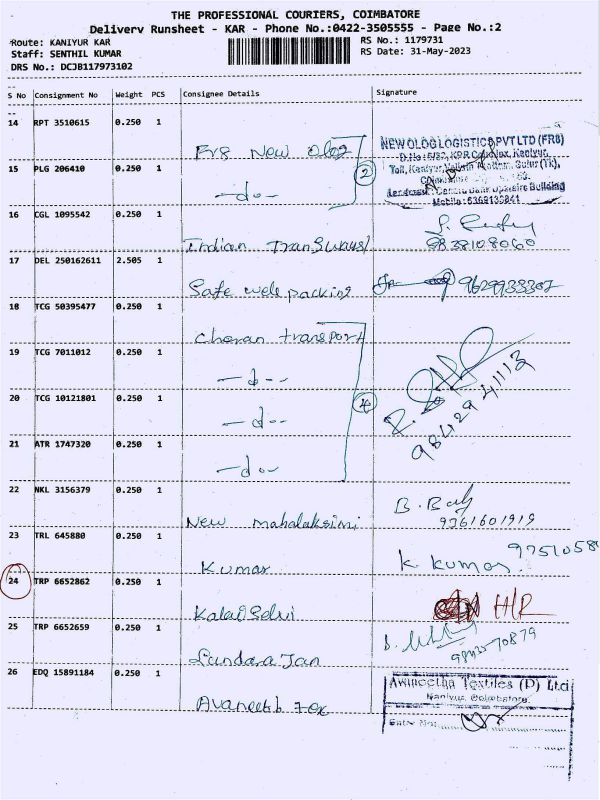 THE PROFESSIONAL COURIERS, COIMBATORE
Delivery Runsheet - KAR - Phone No.:0422-3505555 - Page No.:2
Route: KANIYUR KAR
RS No.: 1179731
Staff: SENTHIL KUMAR
RS Date: 31-May-2023
DRS No.: DCJB117973102
S No Consignment No Weight PCS Consignee Details Signature
14 RPT 3510615 0.250 1
Fr8 New
NEW OLOG LOGISTICS PVT LTD (FR8)
15 PLG 206410 0.250 1
-do-
2
Mobile: 6369139841
16 CGL 1095542 0.250 1
Indian Transways
9838108060
17 DEL 250162611 2.505 1
Safe web packing
9629933307
18 TCG 50395477 0.250 1
Cheran transport
19 TCG 7011012 0.250 1
-d--
20 TCG 10121801 0.250 1
-do--
4
98429 41113
21 ATR 1747320 0.250 1
-do-
22 NKL 3156379 0.250 1
New mahalaksimi
B.
9361601919
23 TRL 645880 0.250 1
Kumar
K. Kumar
9751058
24 TRP 6652862 0.250 1
Kalai Selvi
H/R
25 TRP 6652659 0.250 1
Sundara Jan
70879
26 EDQ 15891184 0.250 1
Avaneeth Tex
Avineetha Textiles (P) Ltd
Kaniyur, Coimbatore.
Entry No: